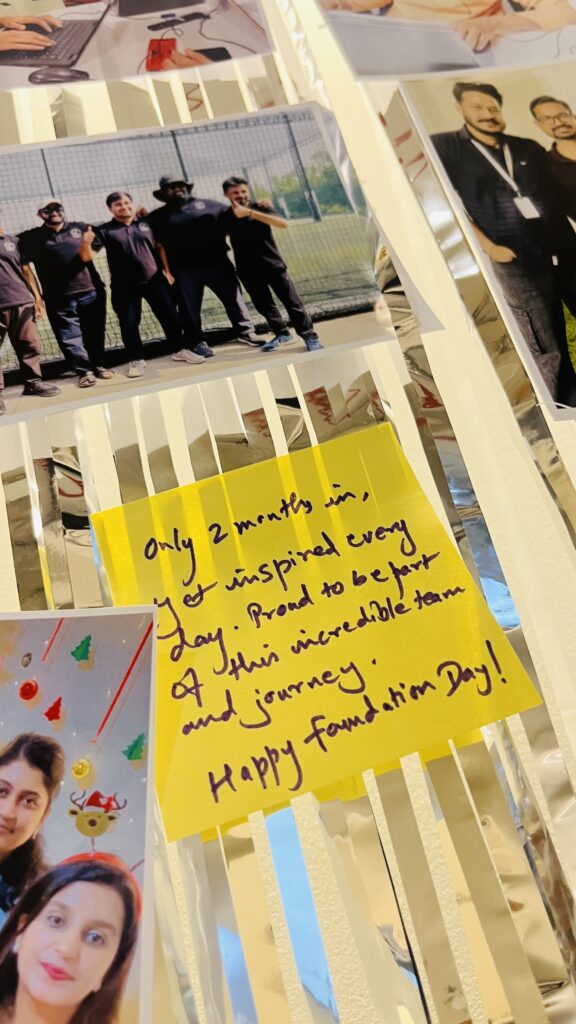 Only 2 months in,
yet inspired every
day. Proud to be part
of this incredible team
and journey.
Happy foundation Day!